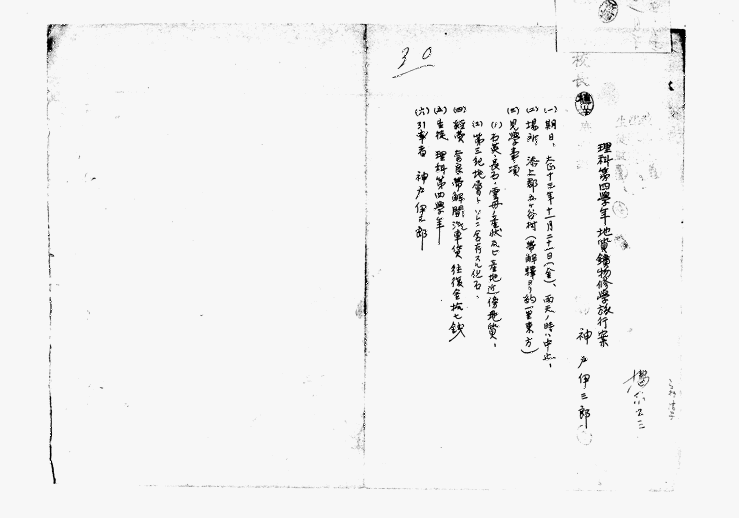 校長
理科第四學年地質鑛物修學旅行案
神戸伊三郎
(一) 期日、大正十三年十一月二十一日(金)、雨天ノ時ハ中止、
(二) 場所 添上郡五ヶ谷村(帶解驛ヨリ約一里東方)
(三) 見學事項
(1) 石英、長石、雲母ノ産状及ビ産地近傍地質、
(2) 第三紀地層トソレニ含有スル化石、
(四) 經費 奈良帶解間汽車賃 往復金拾七錢
(五) 生徒 理科第四學年
(六) 引率者 神戸伊三郎
30